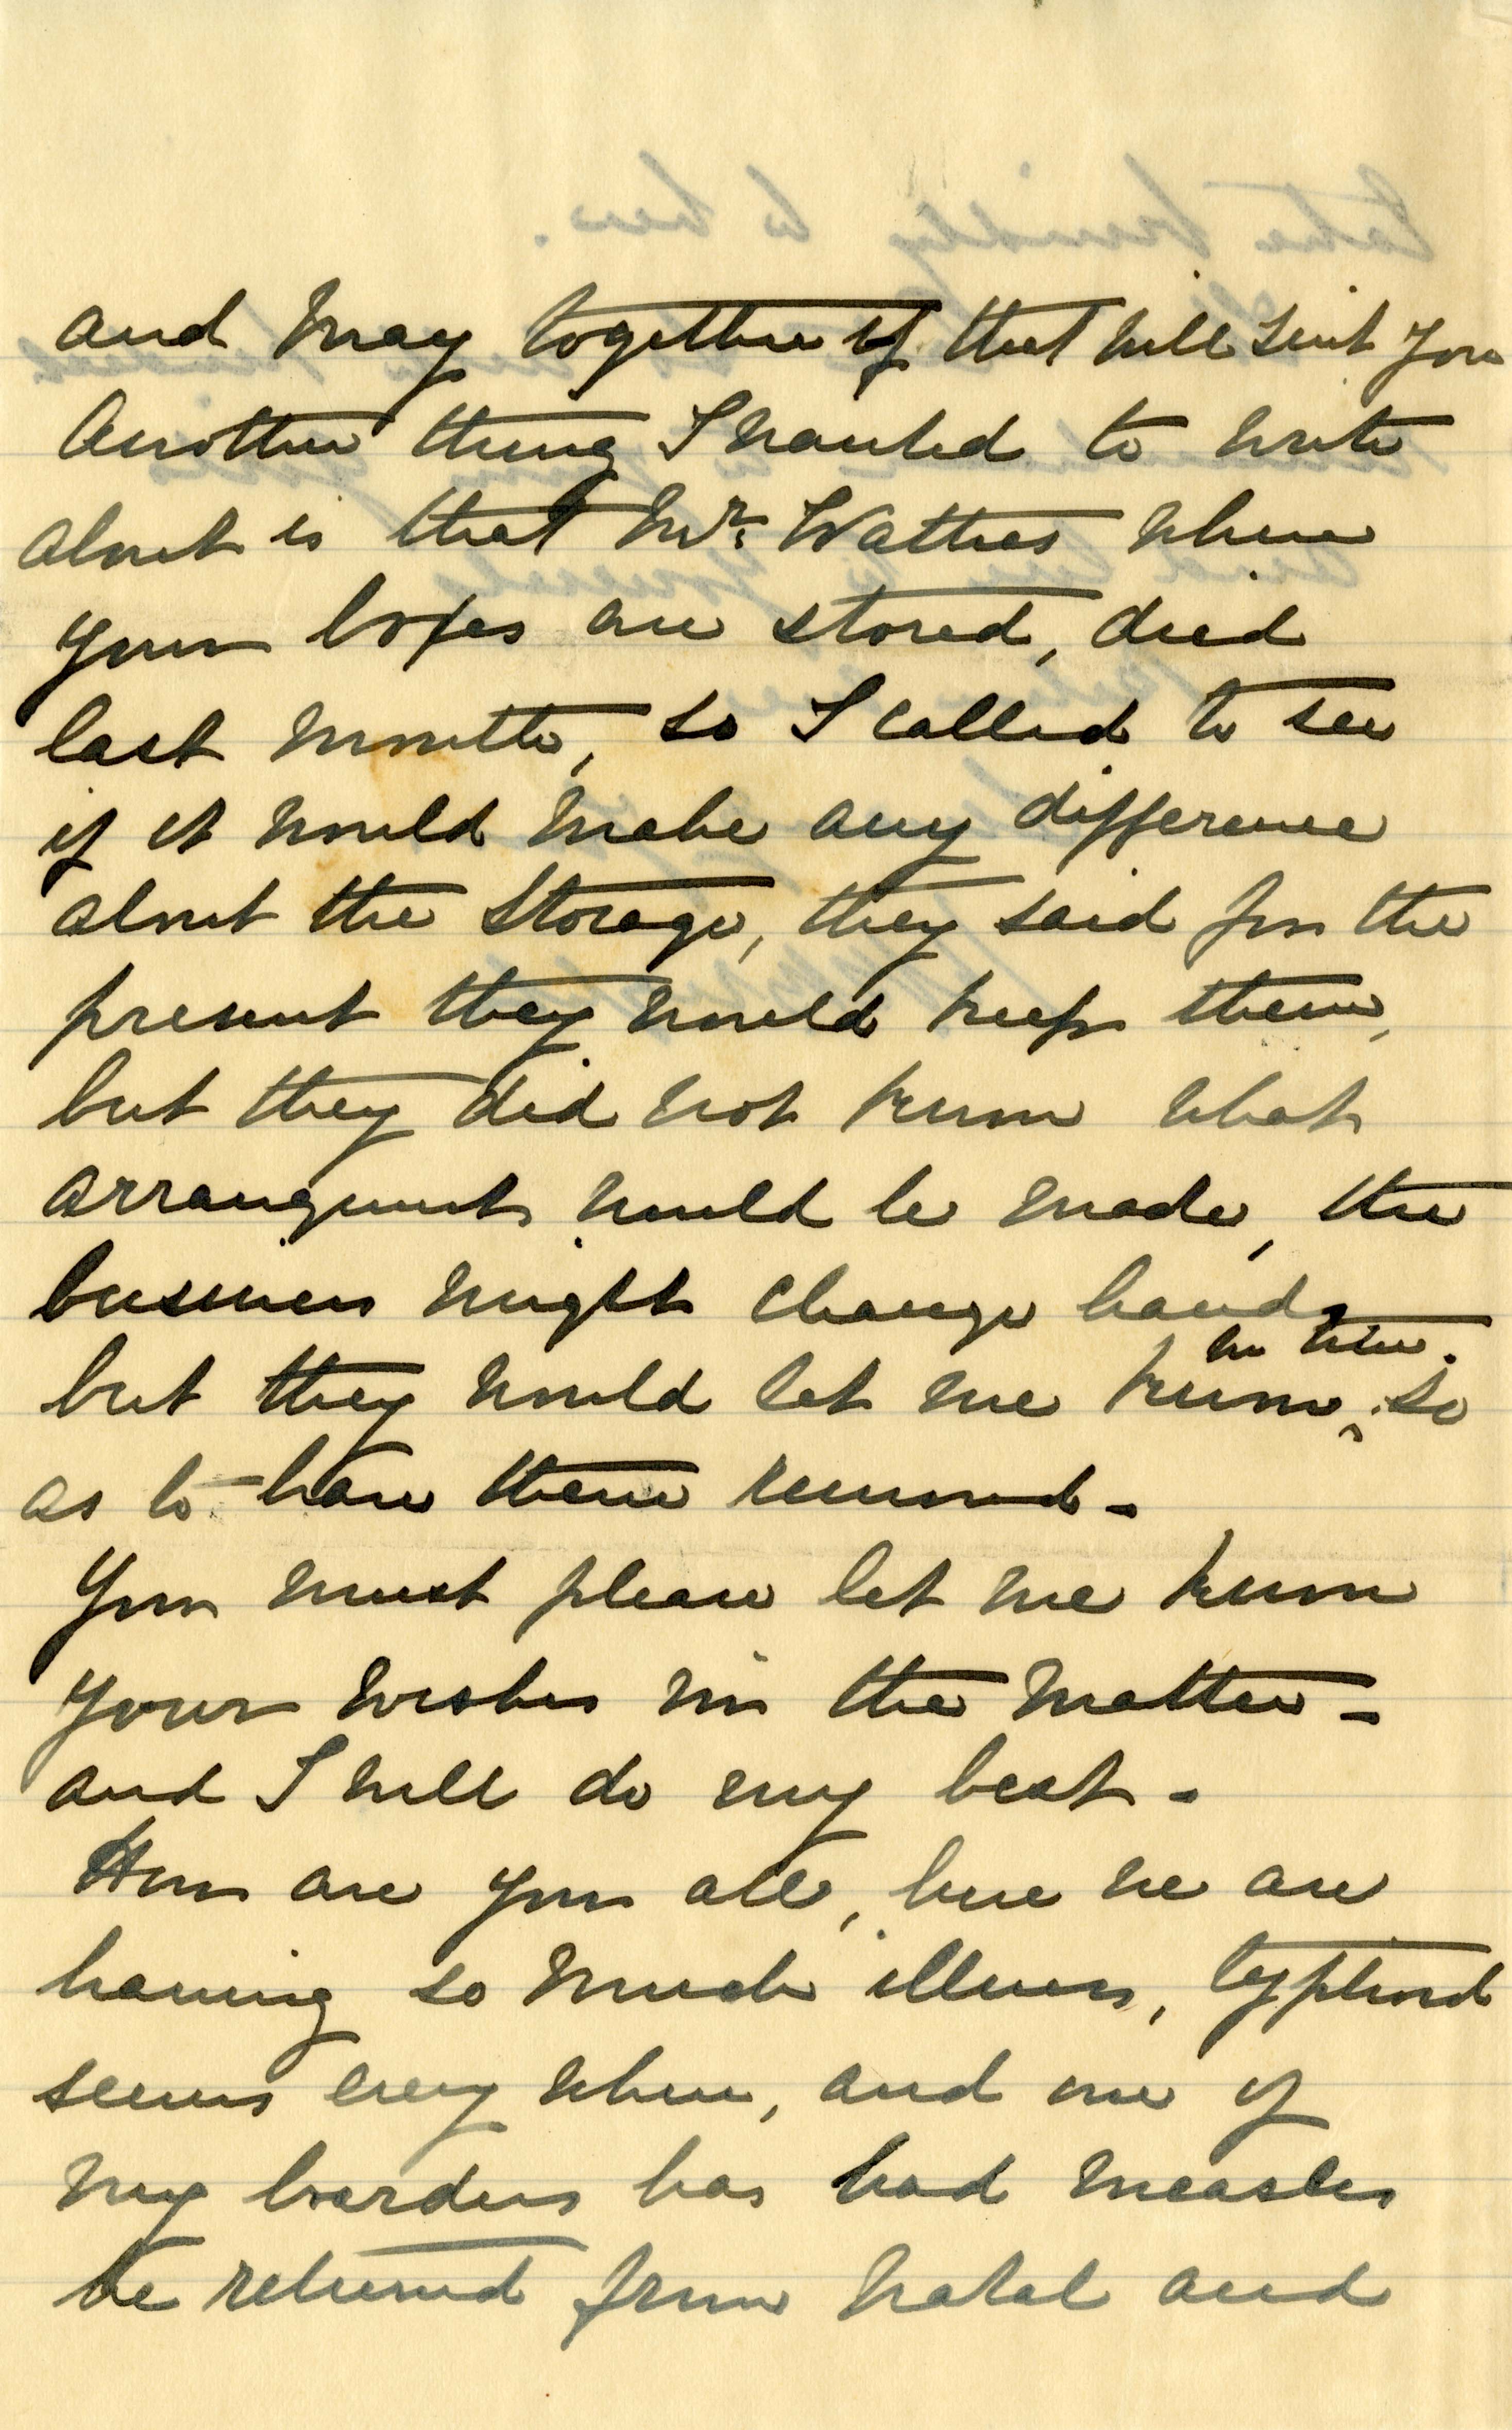 and May together if that will suit you
Another thing I wanted to write
about is that Mr. Watties where
your boxes are stored, died
last month, so I called to see
if it would make any difference
about the storage, they said for the
present they would keep them,
but they did not know what
arrangements would be made, the
business might change hands
but they would let me know in time. so
as to have them removed -
You must please let me know
your wishes in the matter -
and I will do my best -
How are you all, here we are
having so much illness, typhoid
seems every where, and one of
my boarders has had measles
he returned from Natal and